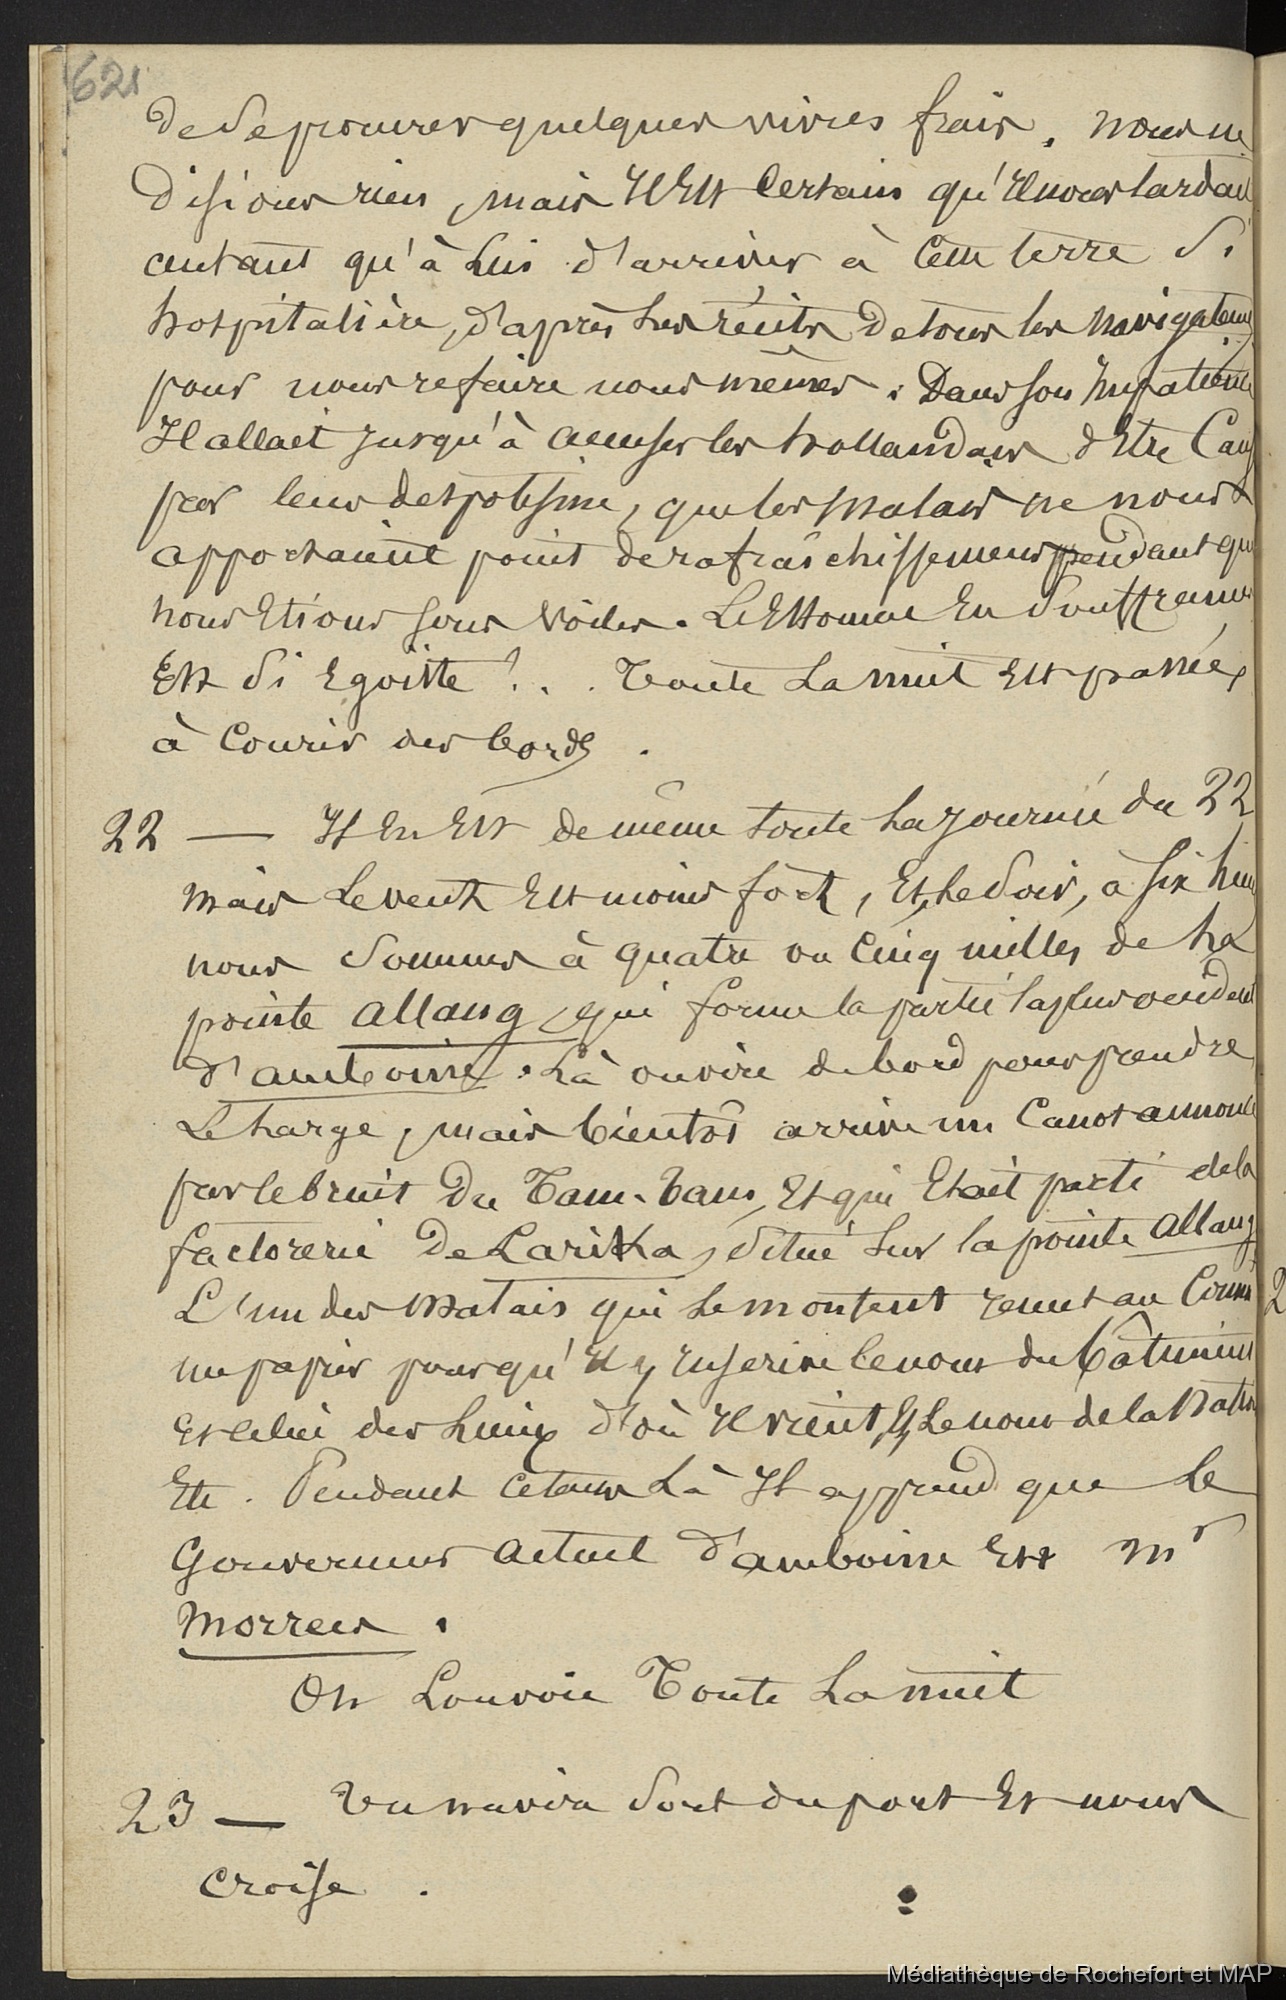 621
de se procurer quelques vivres frais. nous ne
disions rien, mais Il Est Certain qu'Il nous tardait
autant qu'à Lui d'arriver à Cette terre Si
hospitalière, d'après Les récits de tous les Navigateurs
pour nous refaire nous mêmes. Dans son Impatience
Il allait Jusqu'à accuser les hollandais d'Etre Cause
par leur despotisme, que les Malais ne nous
apportaient point de rafraîchissemens pendant que
nous Etions sous Voiles. L'Homme En Souffrance
Est Si Egoïste !... Toute La nuit Est passée,
à Courir des bords.
22 — Il En Est de même toute La Journée du 22
mais Le vent Est moins fort, Et, Le Soir, à Six heures
nous Sommes à quatre ou Cinq milles de La
pointe Allang, qui forme la partie la plus occidentale
d'amboine. Là on vire de bord pour prendre
Le large, mais bientôt arrive un Canot annoncé
par le bruit Du Tam-Tam, Et qui Etait parti de la
factorerie De Larika, Située Sur la pointe Allang
L'un des Malais qui Le montent remet au Comm
un papier pour qu'Il y Inscrive le nom du bâtiment
Et Celui des Lieux d'où Il vient, Et Le nom de la Nation
Etc. Pendant Ce tems Là Il apprend que Le
Gouverneur Actuel d'amboine Est Mr
Morrees.
On Louvoie Toute La nuit
23 — Un navire Sort du port Et nous
Croise.
2
Médiathèque de Rochefort et MAP